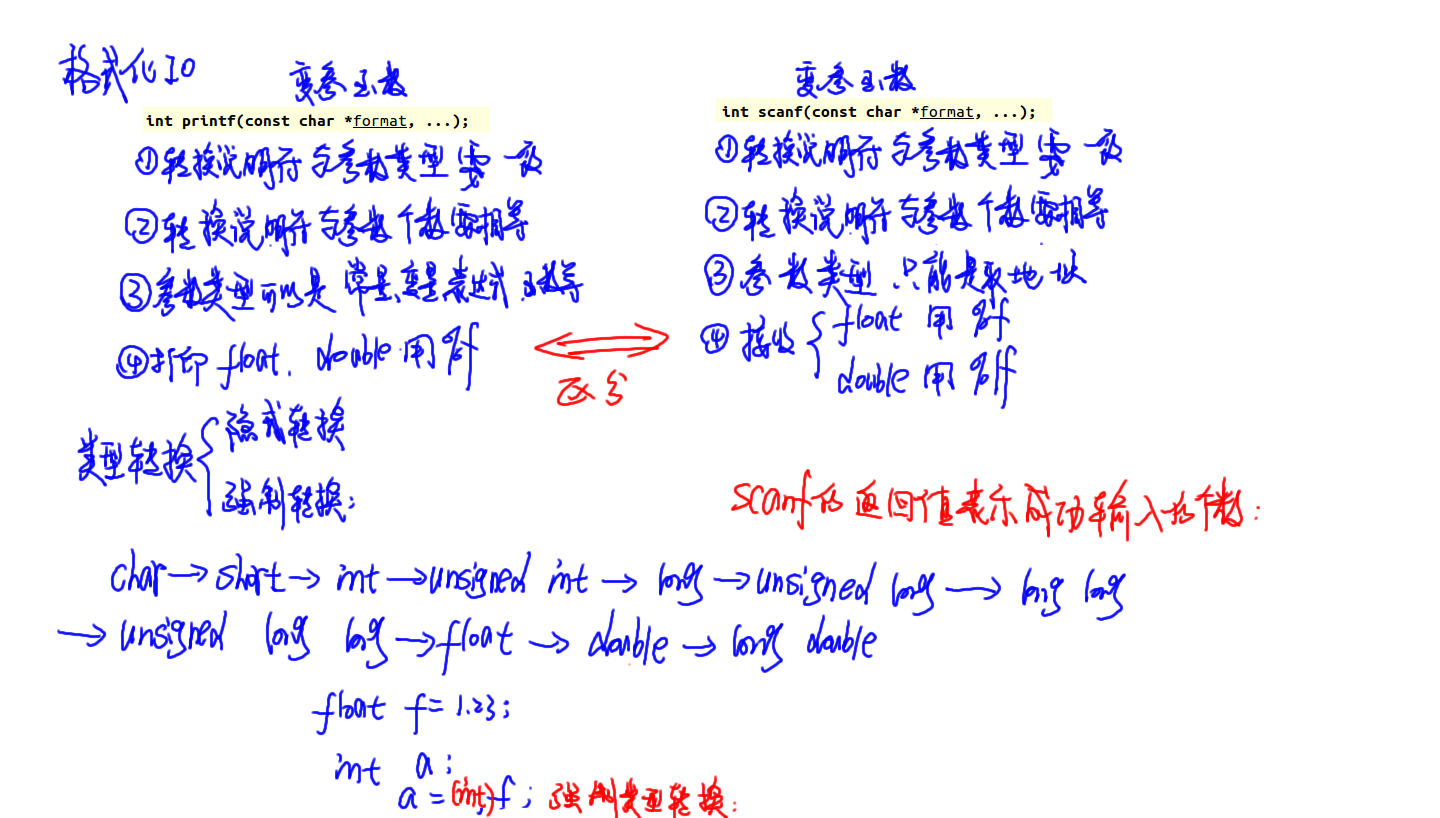 格式化IO
变参函数
int printf(const char *format, ...);
①转换说明符与参数类型需一致
②转换说明符与参数个数需相等
③参数类型可以是常量、变量、表达式、函数等
④打印float、double用%f
变参函数
int scanf(const char *format, ...);
①转换说明符与参数类型需一致
②转换说明符与参数个数需相等
③参数类型只能是取地址
④接收
float用%f
double用%lf
区分
类型转换
隐式转换
强制转换:
scanf的返回值表示成功输入的个数:
char→short→int→unsigned int→long→unsigned long→long long
→unsigned long long→float→double→long double
float f=1.23;
int a;
a=(int)f; 强制类型转换: